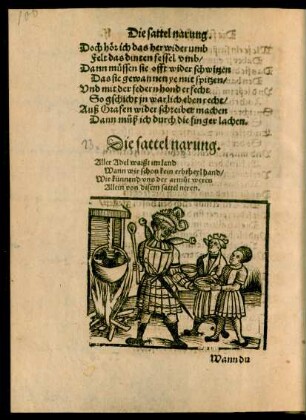 Die sattel narung.
Doch hör ich das her wider umb
Felt das dinten fessel umb/
Dann müssen sie offt wider schwitzen
Das sie gewannen ye mit spitzen/
Und mit der federn hond erfecht
So gschicht jn warlich eben recht/
Auß Grafen wider schreiber machen
Dann müß ich durch die finger lachen.
Die sattel narung.
Aller Adel waißt im land
Wann wir schon kein erbtheyl hand/
Wie künnend uns der armüt weren
Allein von disem sattel neren.
Wann du